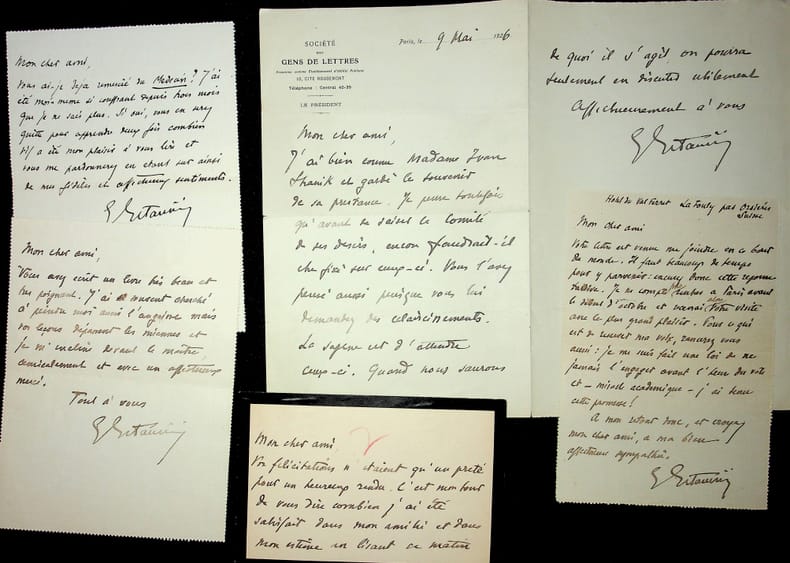 Mon cher ami,
Vous ai-je déjà remercié du Medecin ? J'ai
été moi-même si souffrant depuis trois mois
que je ne sais plus. Si oui, vous en serez
quitte pour apprendre deux fois combien
m'a été mon plaisir à vous lire et
vous me pardonnerez en étant sur ainsi
de mes fidèles et affectueux sentiments.
E Estaunié
Mon cher ami,
Vous avez écrit un livre très beau et
très poignant. J'ai souvent cherché
à peindre moi aussi l'angoisse mais
vos leçons dépassent les miennes et
je m'incline devant le maître,
amicalement et avec un affectueux
merci.
Tout à vous
E Estaunié
SOCIÉTÉ
DES
GENS DE LETTRES
10, CITÉ ROUGEMONT
Téléphone : Central 40-39
LE PRÉSIDENT
Paris, le 9 Mai 1926
Mon cher ami,
J'ai bien connu Madame Ivan
et gardé le souvenir
de sa prestance. Je pense toutefois
qu'avant de saisir le Comité
de ses désirs, encore faudrait-il
être fixé sur ceux-ci. Vous l'avez
pensé aussi puisque vous lui
demandez des éclaircissements.
La sagesse est d'attendre
ceux-ci. Quand nous saurons
de quoi il s'agit, on pourra
seulement en discuter utilement
Affectueusement à vous
E Estaunié
Mon cher ami,
Vos félicitations n'étaient qu'un prêté
pour un heureux rendu. C'est mon tour
de vous dire combien j'ai été
satisfait dans mon amitié et dans
mon estime en lisant ce matin
Hotel du Val Ferret La Fouly par Orsières
Suisse
Mon cher ami
Votre lettre est venue me joindre en ce bout
du monde. Il faut beaucoup de temps
pour y parvenir : excusez donc cette réponse
tardive. Je ne compte pas rentrer à Paris avant
le début d'octobre et recevrai alors votre visite
avec le plus grand plaisir. Pour ce qui
est de mon vote, rassurez vous
aussi : je me suis fait une loi de ne
jamais l'engager avant l'heure du vote
et – miracle académique – j'ai tenu
cette promesse !
A mon retour donc, et croyez
mon cher ami, à ma bien
affectueuse sympathie.
E Estaunié